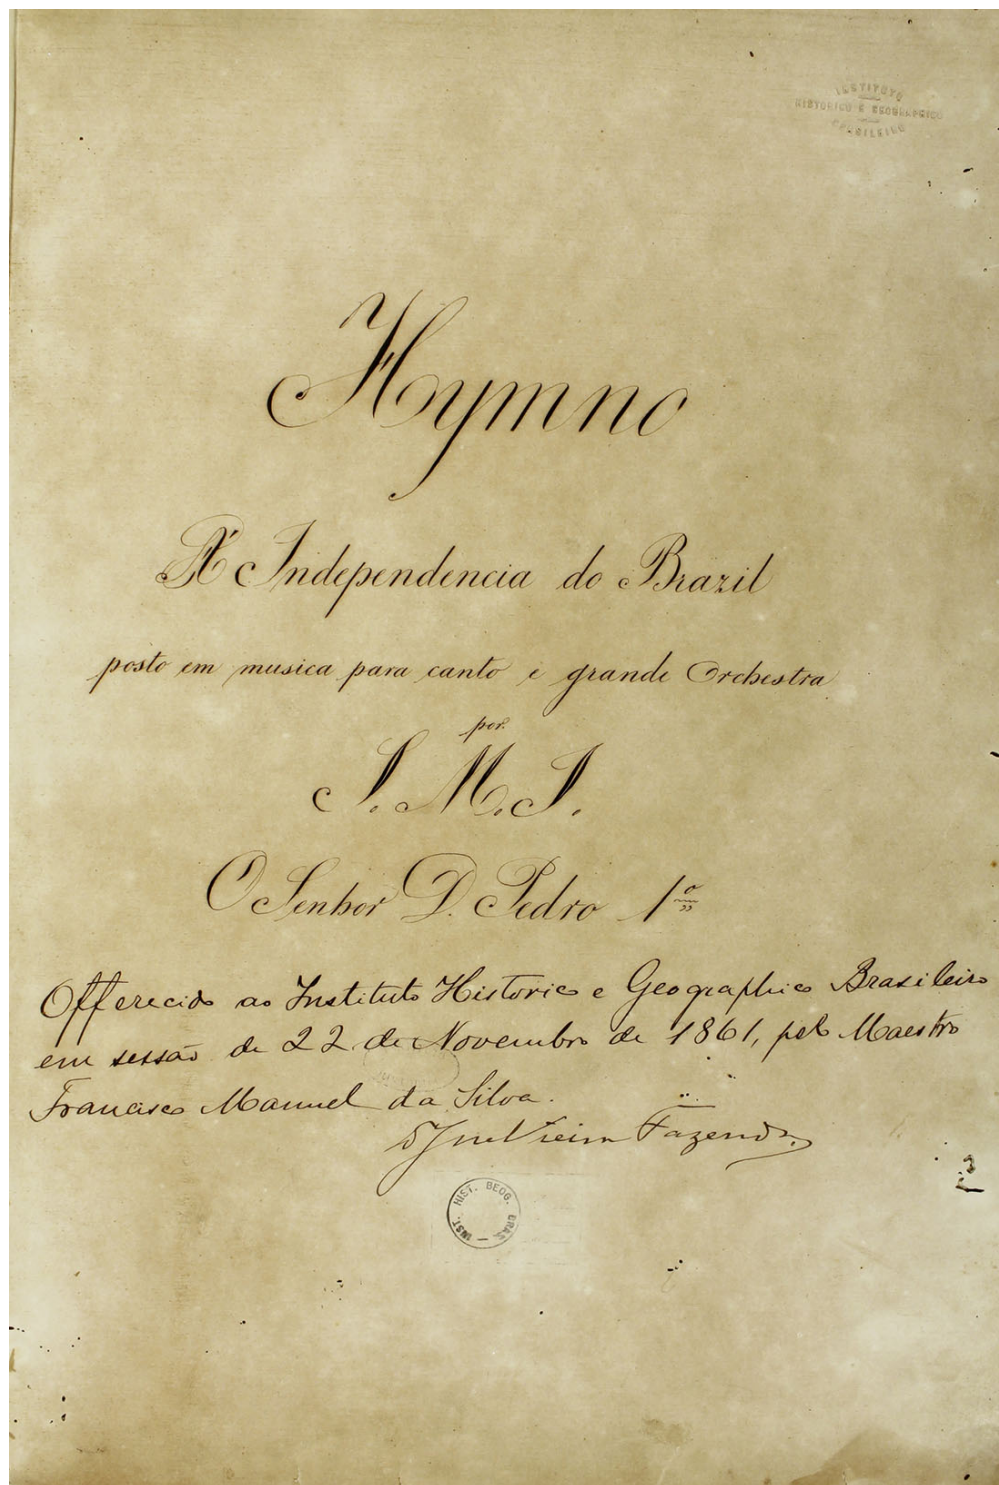 INSTITUTO
HISTORICO E GEOGRAPHICO
BRASILEIRO
Hymno
Á Independencia do Brazil
posto em musica para canto e grande Orchestra
por
S. M. I.
O Senhor D. Pedro 1º
Offerecido ao Instituto Historico e Geographico Brasileiro
em sessão de 22 de Novembro de 1861, pelo Maestro
Francisco Manuel da Silva.
Vieira Fazenda.
INST. HIST. GEOG. BRAS.